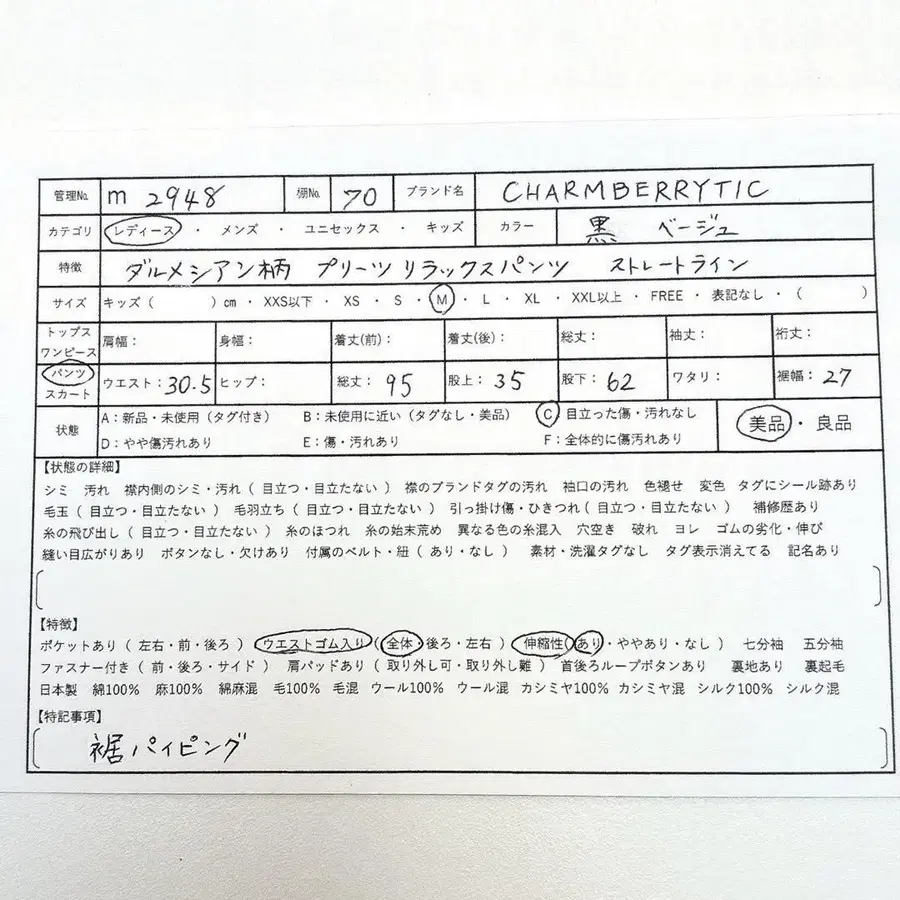 管理№ m 2948 棚№ 70 ブランド名 CHARMBERRYTIC
カテゴリ レディース ・ メンズ ・ ユニセックス ・ キッズ カラー 黒 ベージュ
特徴 ダルメシアン柄 プリーツ リラックスパンツ ストレートライン
サイズ キッズ（ ）cm ・ XXS以下 ・ XS ・ S ・ M ・ L ・ XL ・ XXL以上 ・ FREE ・ 表記なし ・（ ）
トップス ワンピース 肩幅： 身幅： 着丈(前)： 着丈(後)： 総丈： 袖丈： 裄丈：
パンツ スカート ウエスト：30.5 ヒップ： 総丈：95 股上：35 股下：62 ワタリ： 裾幅：27
状態 A：新品・未使用（タグ付き） B：未使用に近い（タグなし・美品） C：目立った傷・汚れなし 美品 ・ 良品
D：やや傷汚れあり E：傷・汚れあり F：全体的に傷汚れあり
【状態の詳細】
シミ 汚れ 襟内側のシミ・汚れ（ 目立つ・目立たない ） 襟のブランドタグの汚れ 袖口の汚れ 色褪せ 変色 タグにシール跡あり
毛玉（ 目立つ・目立たない ） 毛羽立ち（ 目立つ・目立たない ） 引っ掛け傷・ひきつれ（ 目立つ・目立たない ） 補修歴あり
糸の飛び出し（ 目立つ・目立たない ） 糸のほつれ 糸の始末荒め 異なる色の糸混入 穴空き 破れ ヨレ ゴムの劣化・伸び
縫い目広がりあり ボタンなし・欠けあり 付属のベルト・紐（ あり・なし ） 素材・洗濯タグなし タグ表示消えてる 記名あり
【特徴】
ポケットあり（ 左右・前・後ろ ） ウエストゴム入り（ 全体・後ろ・左右 ） 伸縮性（ あり・ややあり・なし ） 七分袖 五分袖
ファスナー付き（ 前・後ろ・サイド ） 肩パッドあり（ 取り外し可・取り外し難 ） 首後ろループボタンあり 裏地あり 裏起毛
日本製 綿100% 麻100% 綿麻混 毛100% 毛混 ウール100% ウール混 カシミヤ100% カシミヤ混 シルク100% シルク混
【特記事項】
裾パイピング